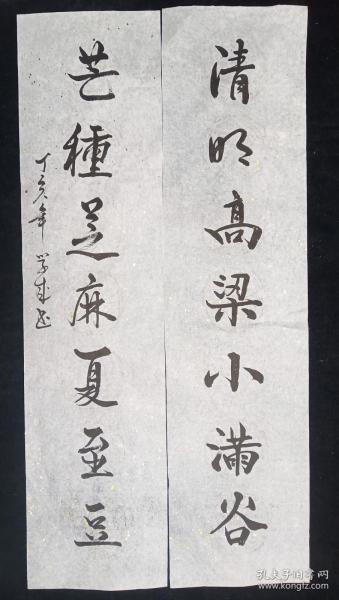 清明高梁小滿谷
芒種芝麻夏至豆
丁亥年 学成书
孔夫子旧书网
www.kongfz.com